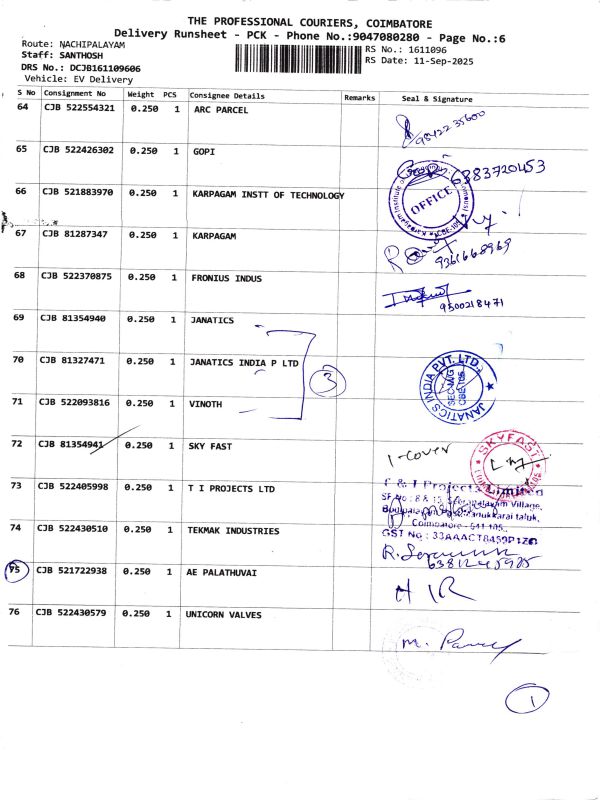 THE PROFESSIONAL COURIERS, COIMBATORE
Delivery Runsheet - PCK - Phone No.:9047080280 - Page No.:6
Route: NACHIPALAYAM
Staff: SANTHOSH
DRS No.: DCJB161109606
Vehicle: EV Delivery
RS No.: 1611096
RS Date: 11-Sep-2025
S No Consignment No Weight PCS Consignee Details Remarks Seal & Signature
64 CJB 522554321 0.250 1 ARC PARCEL
9842235600
65 CJB 522426302 0.250 1 GOPI
6383720453
66 CJB 521883970 0.250 1 KARPAGAM INSTT OF TECHNOLOGY
OFFICE
67 CJB 81287347 0.250 1 KARPAGAM
9361668969
68 CJB 522370875 0.250 1 FRONIUS INDUS
9500218471
69 CJB 81354940 0.250 1 JANATICS
70 CJB 81327471 0.250 1 JANATICS INDIA P LTD
3
JANATICS INDIA PVT. LTD.
71 CJB 522093816 0.250 1 VINOTH
72 CJB 81354941 0.250 1 SKY FAST
1-cover
SKYFAST
73 CJB 522405998 0.250 1 T I PROJECTS LTD
Projects Limited
Village,
taluk,
Coimbatore - 641 105.
GST No : 33AAACT8459P1Z0
74 CJB 522430510 0.250 1 TEKMAK INDUSTRIES
6381245985
75 CJB 521722938 0.250 1 AE PALATHUVAI
HIR
76 CJB 522430579 0.250 1 UNICORN VALVES
1